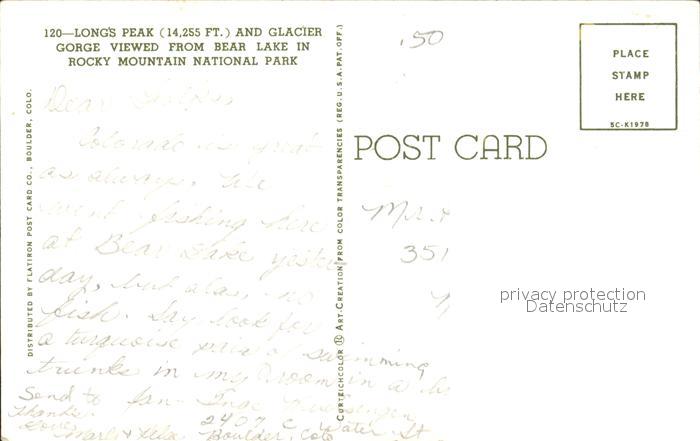 120—LONG'S PEAK (14,255 FT.) AND GLACIER
GORGE VIEWED FROM BEAR LAKE IN
ROCKY MOUNTAIN NATIONAL PARK
Dear Folks,
Colorado is great
as always. We
went fishing here
at Bear Lake yester
day, but alas, no
fish. Say, look for
a turquoise pair of swimming
trunks in my room in a
Send to Jan
Thanks.
Love,
2407 C Water St
Boulder, Colo
DISTRIBUTED BY FLATIRON POST CARD CO., BOULDER, COLO.
CURTEICHCOLOR ® ART-CREATION FROM COLOR TRANSPARENCIES (REG. U.S.A. PAT. OFF.)
.50
POST CARD
PLACE
STAMP
HERE
5C-K1978
Mr. &
351
privacy protection
Datenschutz